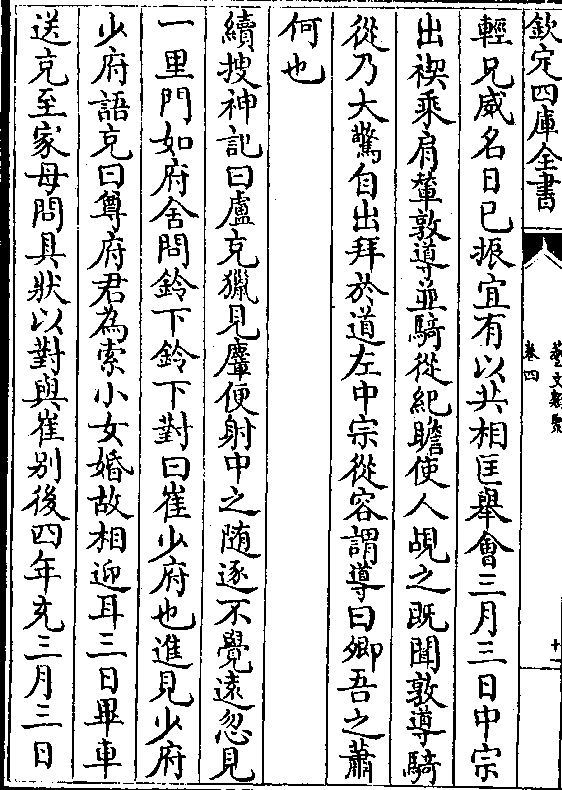 欽定四庫全書
藝文類聚
卷四
十一
輕兄威名日已振宜有以共相匡舉會三月三日中宗
出禊乘肩輦敦導並騎從紀瞻使人覘之既聞敦導騎
從乃大驚自出拜於道左中宗從容謂導曰卿吾之蕭
何也
續搜神記曰盧充獵見麞便射中之随逐不覺遠忽見
一里門如府舍問鈴下鈴下對曰崔少府也進見少府
少府語充曰尊府君為索小女婚故相迎耳三日畢車
送充至家母問具狀以對與崔别後四年充三月三日